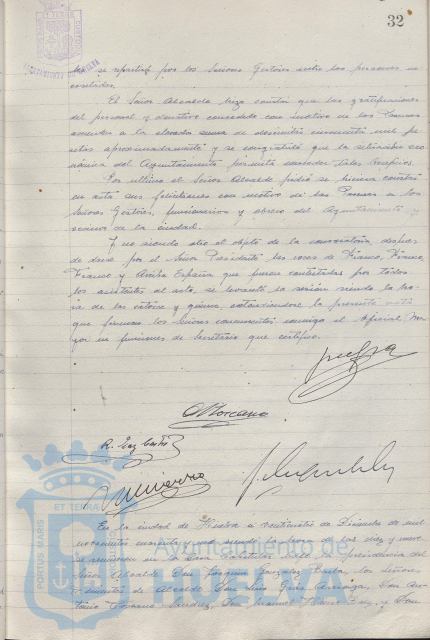 32
se repartirá por los Señores Gestores entre las personas
El Señor Alcalde hizo constar que las gratificaciones
del personal y donativo concedido con motivo de las Pascuas
ascienden a la elevada suma de doscientas cincuenta mil pe
setas aproximadamente y se congratuló que la situación eco
nómica del Ayuntamiento permita conceder tales
Por último el Señor Alcalde pidió se hiciera constar
en acta sus felicitaciones con motivo de las Pascuas a los
Señores Gestores, funcionarios y obreros del Ayuntamiento y
de la ciudad.
Y no siendo otro el objeto de la convocatoria, después
de darse por el Señor Presidente las voces de Franco, Franco,
Franco y Arriba España que fueron contestadas por todos
los asistentes al acto, se levantó la sesión siendo la ho
ra de las catorce y quince, extendiéndose la presente acta
que firman los Señores concurrentes conmigo el Oficial Ma
yor en funciones de Secretario que certifico.
ET TERRA
PORTUS MARIS
CUSTODIA
Ayuntamiento de
HUELVA
En la ciudad de Huelva a veinticuatro de Diciembre de mil
novecientos cuarenta y siendo la hora de las diez y nueve
se reunieron en la Sala Capitular bajo la Presidencia del
Señor Alcalde Don Joaquín González Barba los Señores
Tenientes de Alcalde Don Luis Don An
tonio Don Manuel y Don